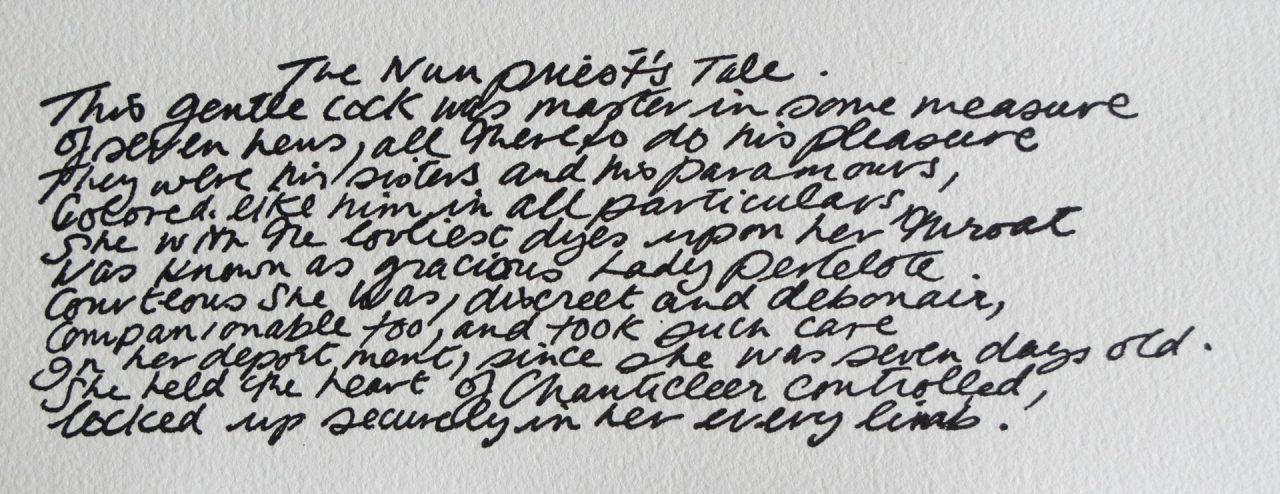 The Nun priest's Tale.
This gentle cock was master in some measure
of seven hens, all there to do his pleasure
They were his sisters and his paramours,
Colored. like him in all particulars,
She with the lovliest dyes upon her throat
Was known as gracious Lady Pertelote.
Courteous she was, discreet and debonair,
Companionable too, and took such care
In her deportment, since she was seven days old.
She held the heart of Chanticleer controlled,
locked up securely in her every limb.